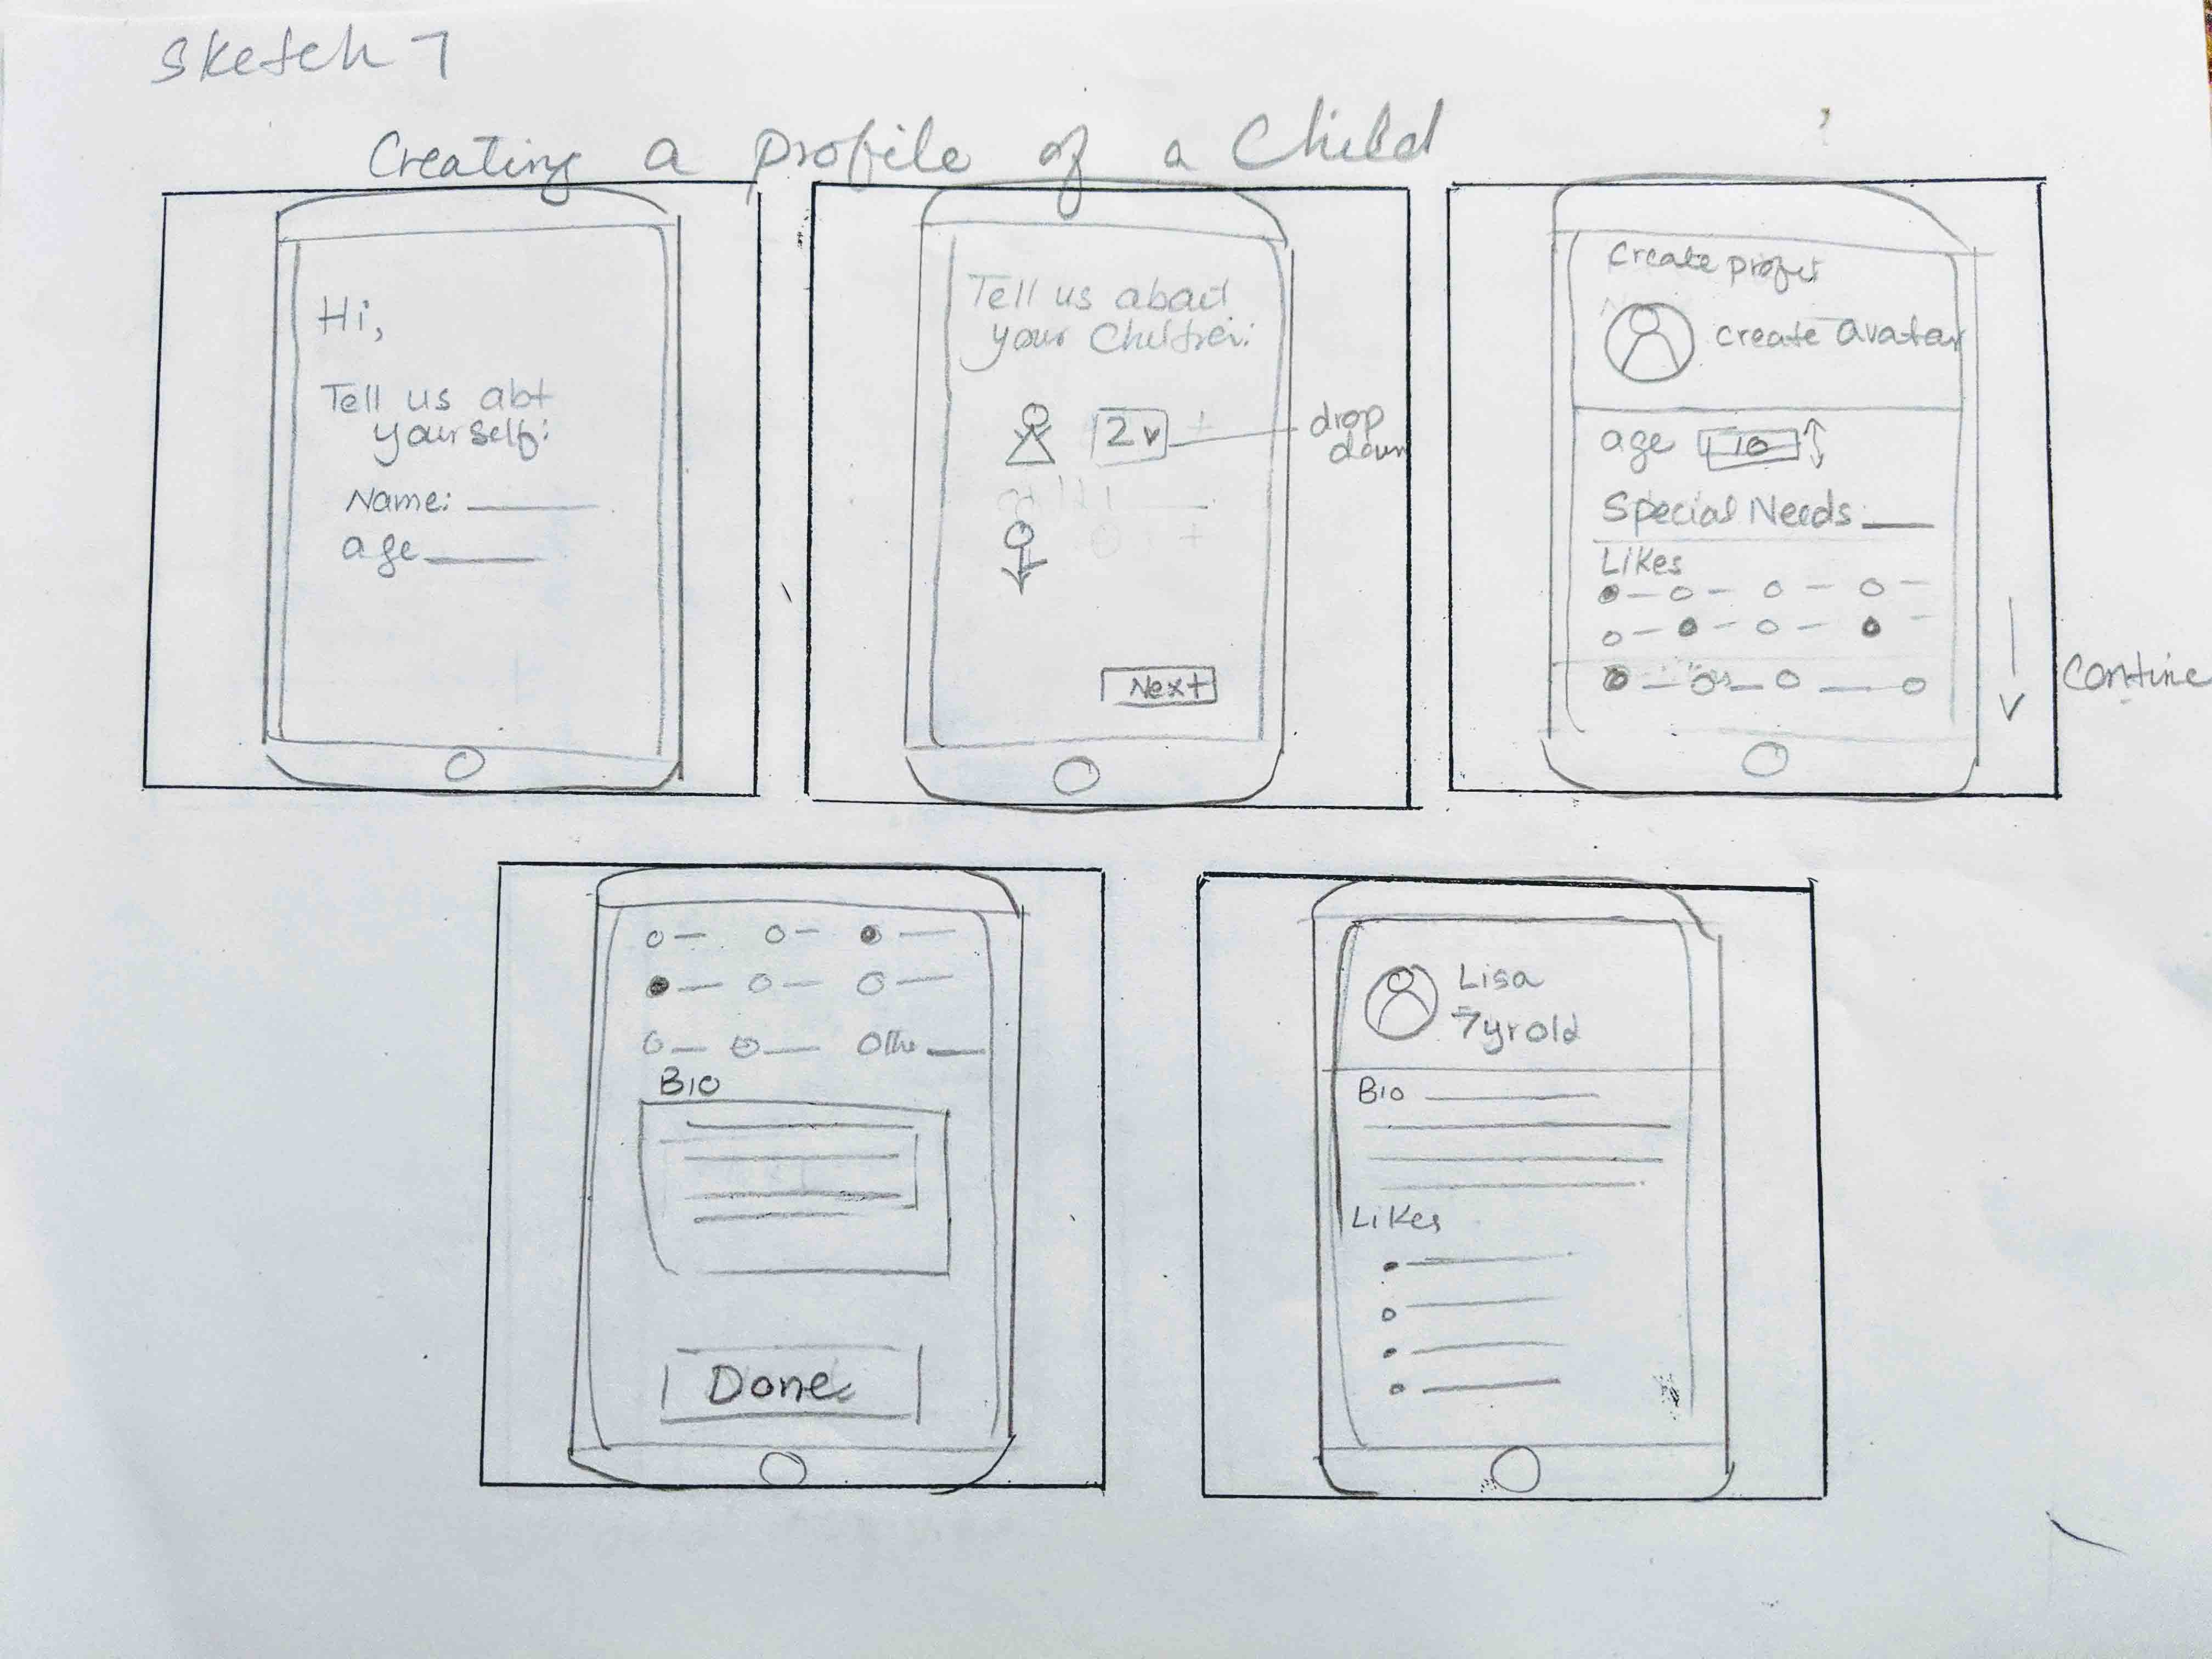 Sketch 7
Creating a profile of a Child
Hi,
Tell us abt
yourself:
Name:
age
Tell us about
your Children:
2
drop
down
Next
Create
create avatar
age 10
Special Needs
Likes
Contine
Othe
Bio
Done
Lisa
7yr old
Bio
Likes